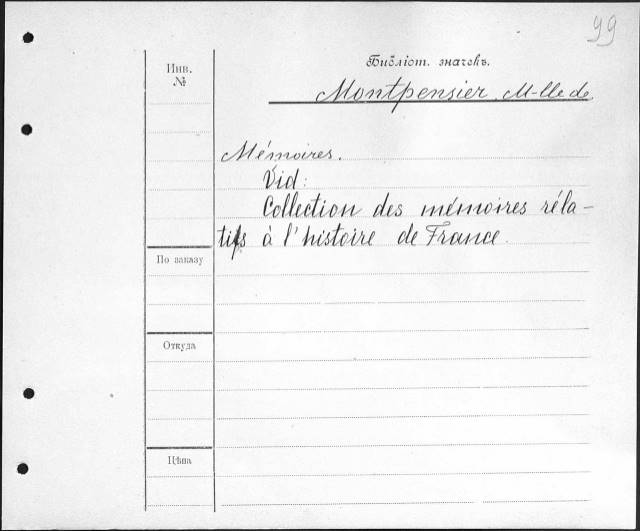 99
Библіот. значекъ.
Инв.
№
Montpensier, M-lle de
Mémoires.
Vid:
Collection des mémoires réla-
tifs à l'histoire de France.
По заказу
Откуда
Цѣна